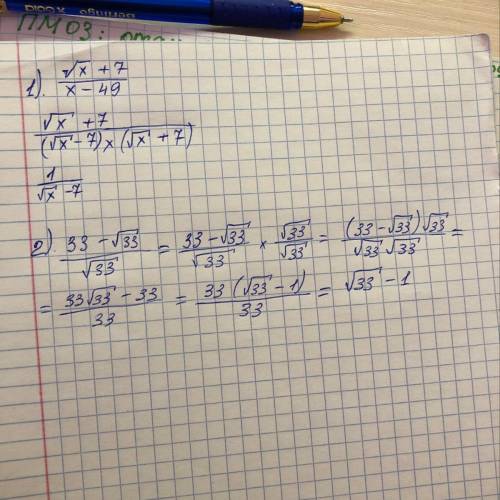 ПМ 03:
1). (√x + 7)/(x - 49)
(√x + 7)/((√x - 7) × (√x + 7))
1/(√x - 7)
2) (33 - √33)/√33 = (33 - √33)/√33 × √33/√33 = ((33 - √33)√33)/(√33 √33) =
= (33√33 - 33)/33 = (33(√33 - 1))/33 = √33 - 1